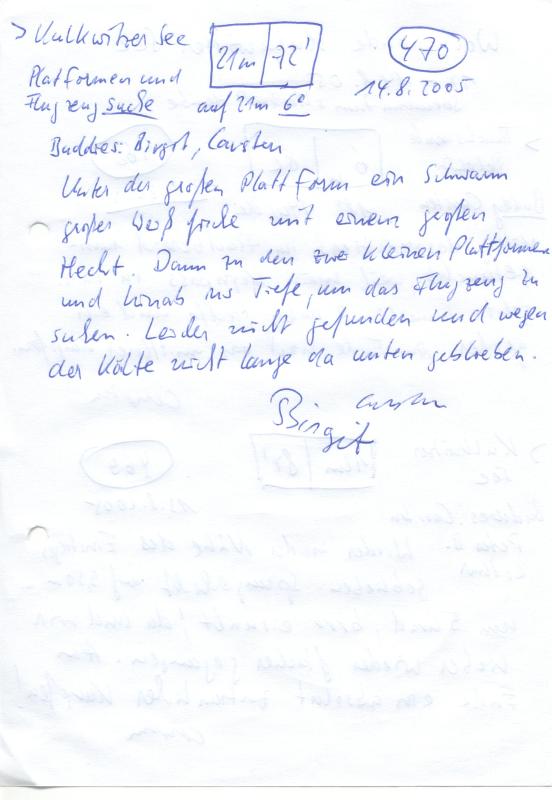 > Kulkwitzer See
21m | 72'
470
Platformen und
Flugzeugsuche auf 21m 6°
14.8.2005
Buddies: Birgit, Carsten
Unter der großen Plattform ein Schwarm
großer Weißfische mit einem großen
Hecht. Dann zu den zwe kleinen Plattformen
und hinab ins Tiefe, um das Flugzeug zu
suchen. Leider nicht gefunden und wegen
der Kälte nicht lange da unten geblieben.
Birgit
Carsten